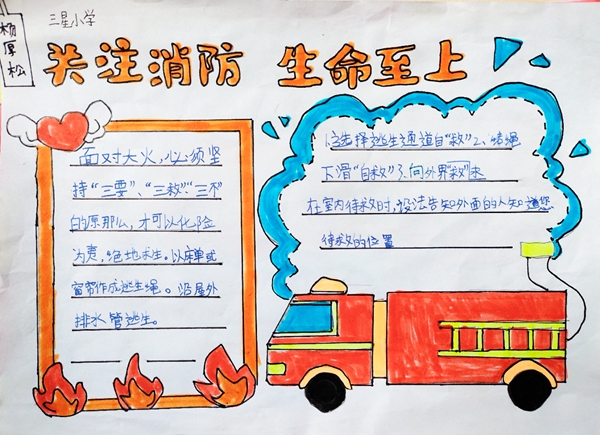 三星小学
杨厚松
关注消防 生命至上
面对大火，心须坚
持“三要”、“三救”“三不”
的原那么，才可以化险
为夷，绝地求生。以床单或
窗帘作成逃生绳。沿屋外
排水管逃生。
1、选择逃生通道自“救”2、结绳
下滑“自救”3、向外界“救”求
在室内待救时，设法告知外面的人知道您
待救的位置